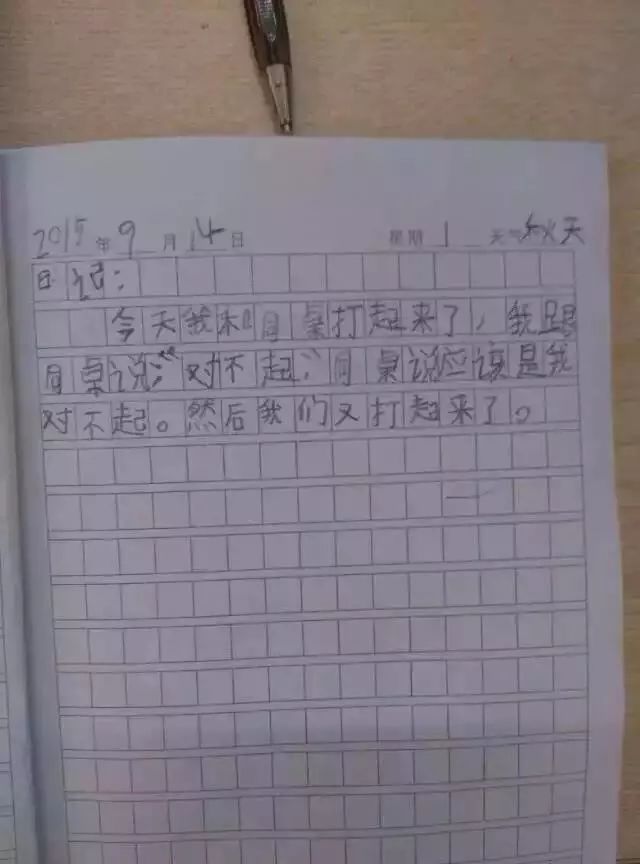 2015年9月14日 星期1 天气 秋天
日记：
今天我和同桌打起来了，我跟
同桌说：“对不起”同桌说应该是我
对不起。然后我们又打起来了。